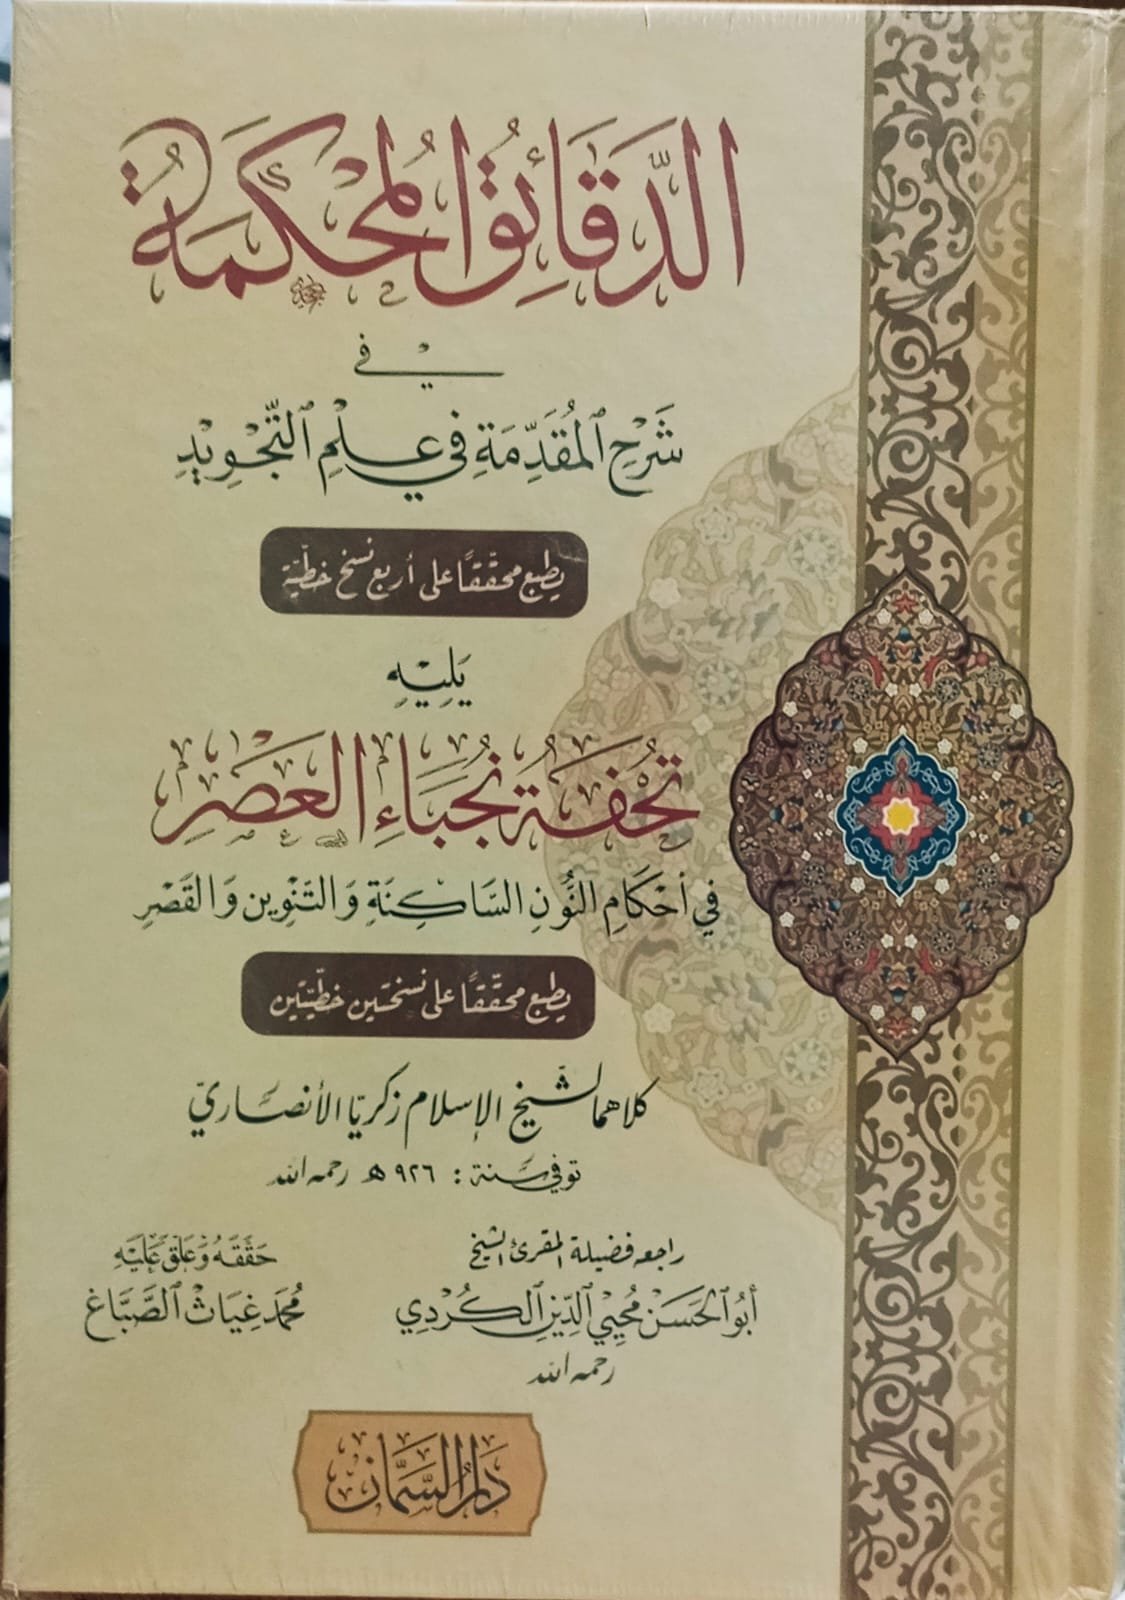 الدَّقَائِقُ المُحْكَمَةُ
في
شَرْحِ المُقَدِّمَةِ فِي عِلْمِ التَّجْوِيدِ
يطبع محققًا على أربع نسخ خطيّة
يَلِيْهِ
تُحْفَةُ نُجَبَاءِ العَصْرِ
في أَحْكَامِ النُّونِ السَّاكِنَةِ وَالتَّنْوِينِ وَالقَصْرِ
يطبع محققًا على نسختين خطيّتين
كلاهما لشيخ الإسلام زكريّا الأنصاريّ
توفي سنة : ٩٢٦ هـ رحمه الله
راجعه فضيلة المقرئ الشيخ
أَبُو الحَسَنْ مُحْيِي الدِّيْنِ الكُرْدِي
رحمه الله
حَقَّقَهُ وَعَلَّقَ عَلَيْهِ
مُحَمَّد غِيَاث الصَّبَّاغ
دَارُ السَّمَّان